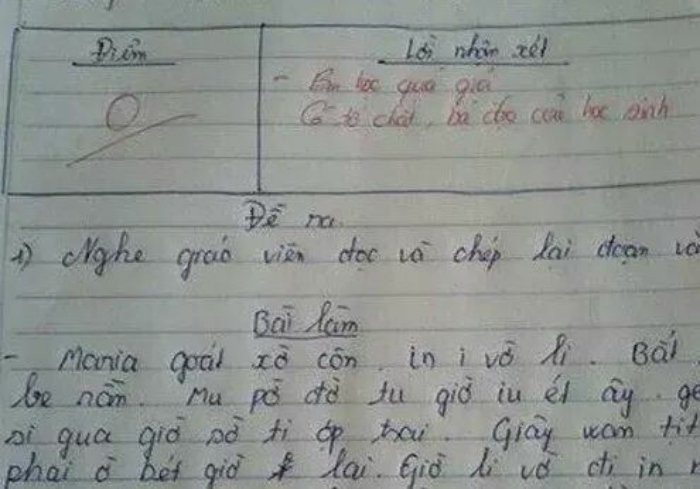 Điểm
Lời nhận xét
0
- Em học quá giỏi
Có tố chất, bá đạo của học sinh
Đề ra
1) Nghe giáo viên đọc và chép lại đoạn
Bài làm
- Maria goát xờ côn, in i vờ li. Bát
be nằn. Mu pờ đờ tu giờ iu ét ây. ge
si qua giờ sờ ti óp trai. Giây wan tit
phai ờ bét giờ lai. Giờ li vờ đi in